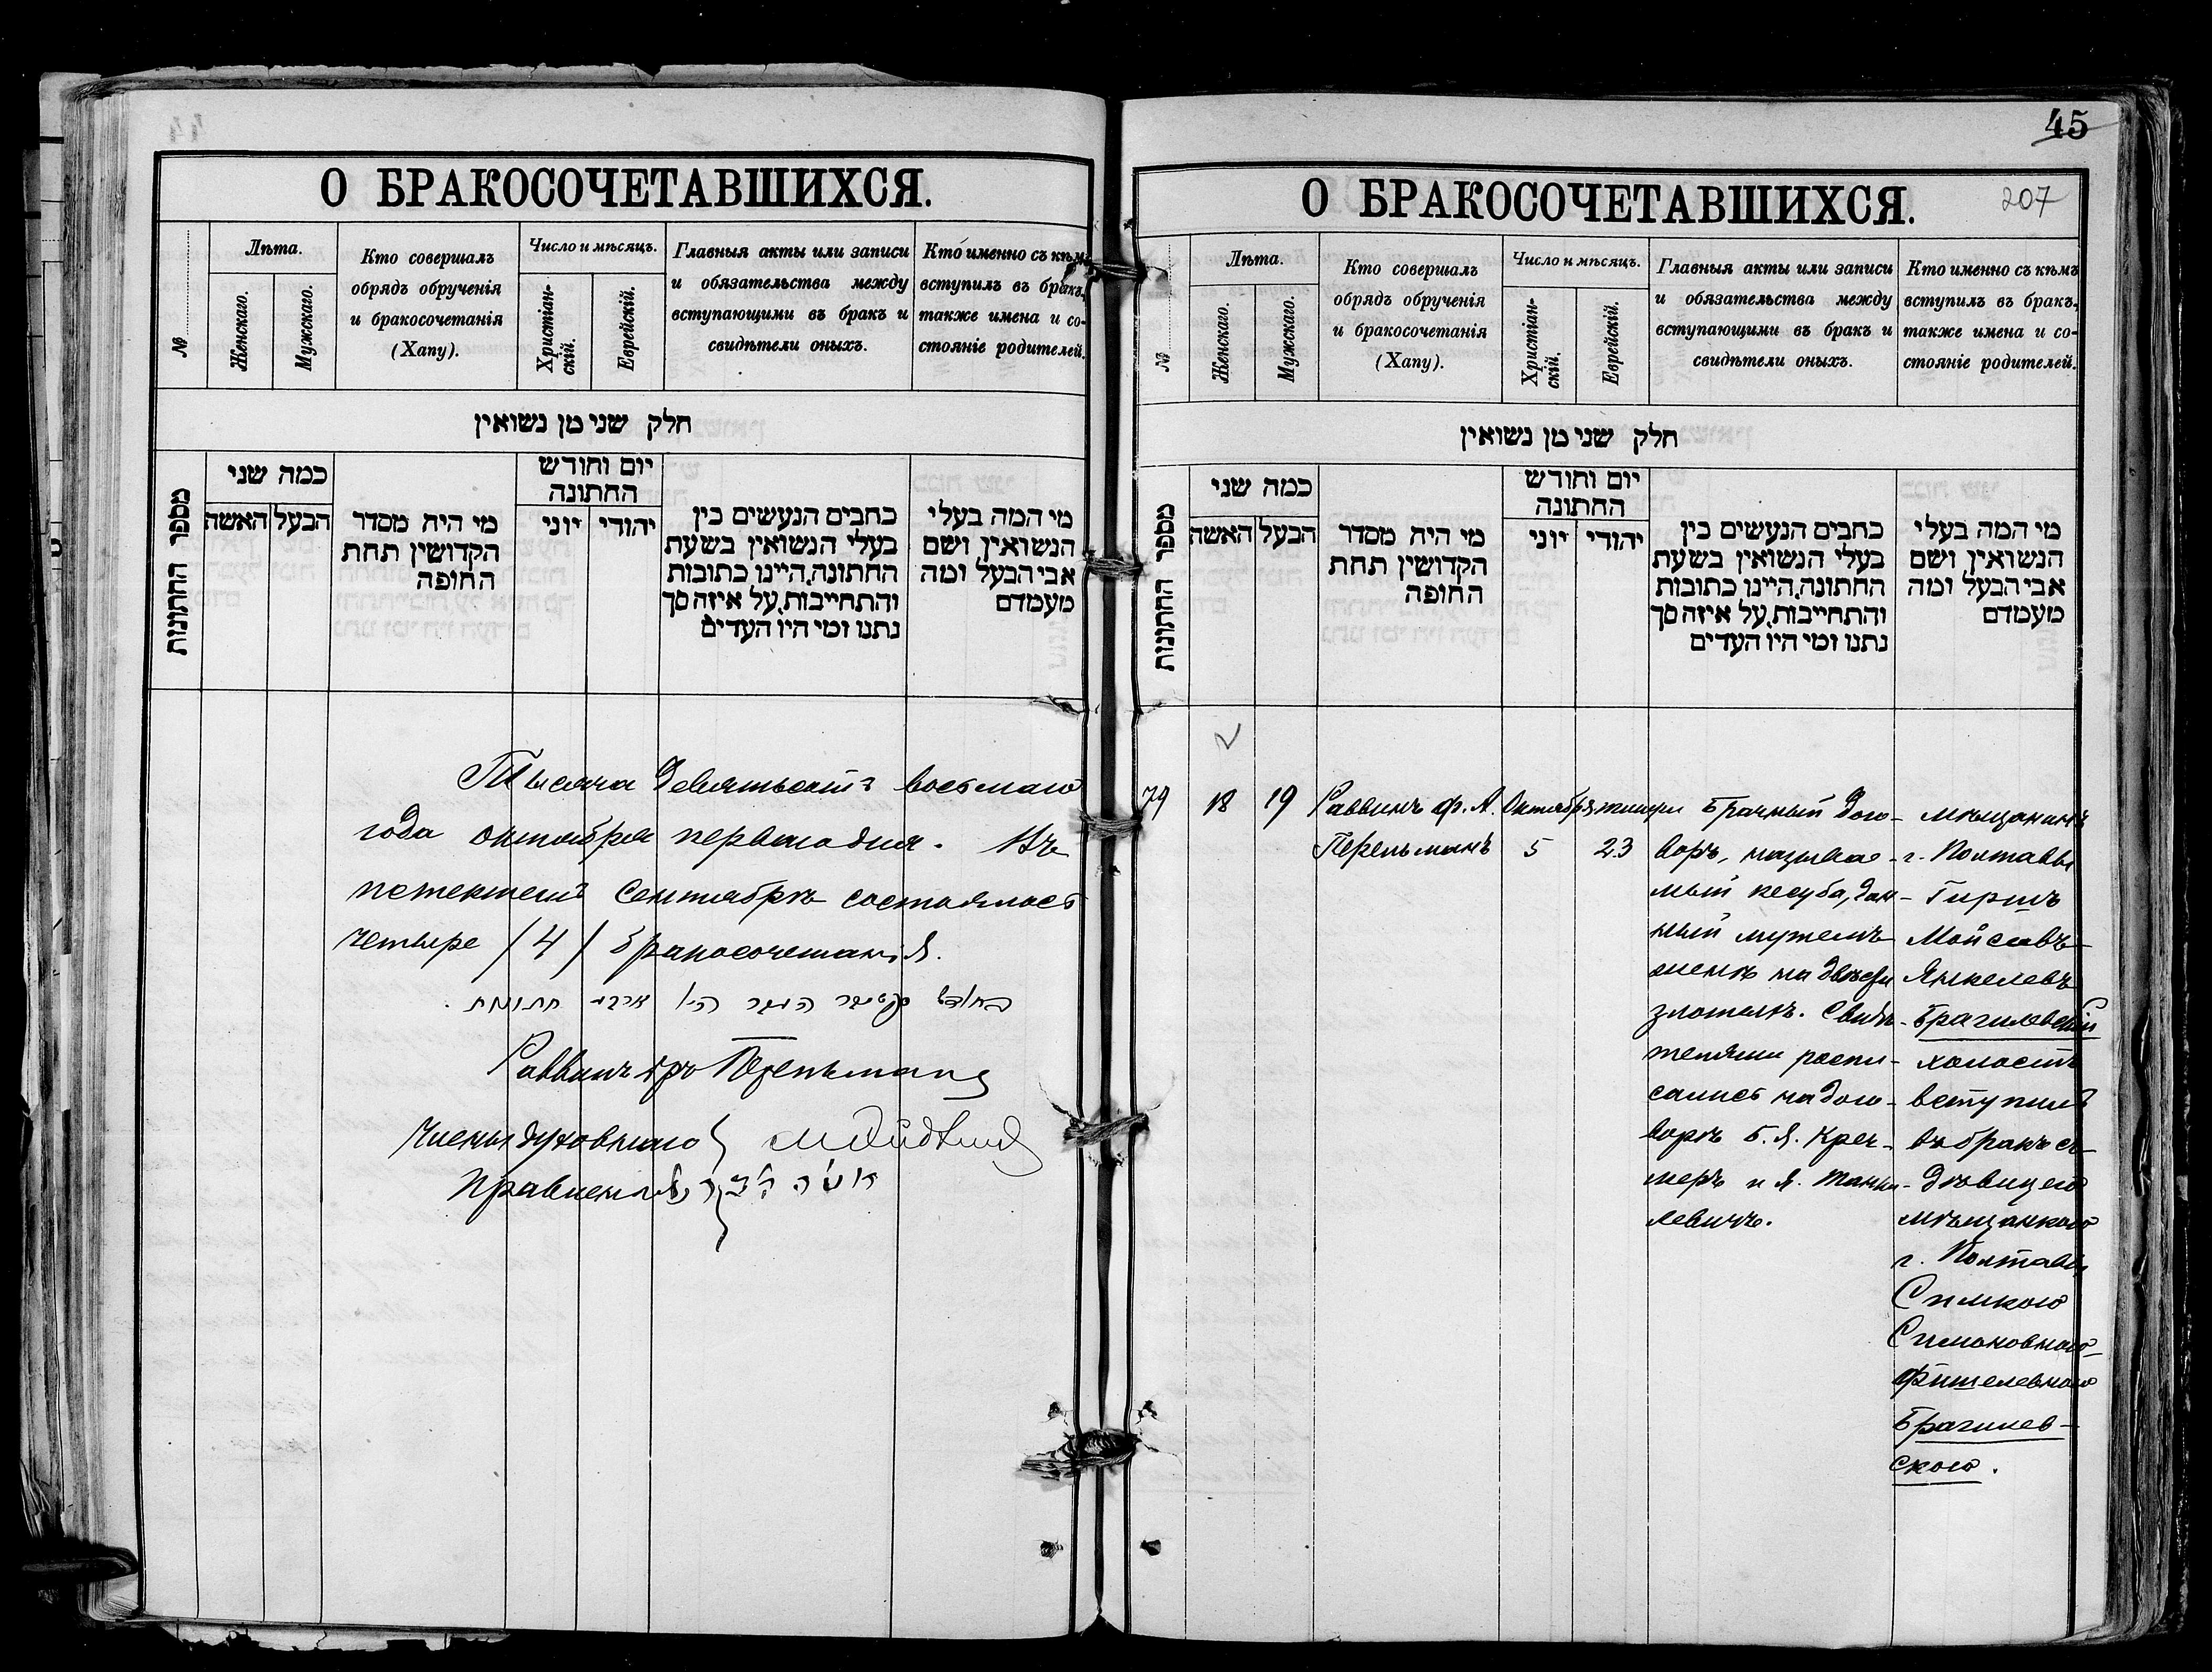 О БРАКОСОЧЕТАВШИХСЯ.
№
Лѣта.
Женскаго.
Мужскаго.
Кто совершалъ
обрядъ обрученія
и бракосочетанія
(Хапу).
Число и мѣсяцъ.
Христіан-
скій.
Еврейскій.
Главныя акты или записи
и обязательства между
вступающими въ бракъ и
свидѣтели оныхъ.
Кто именно съ кѣмъ
вступилъ въ бракъ,
также имена и со-
стояніе родителей.
חלק שני מן נשואין
מספר החתונות
כמה שני
האשה
הבעל
מי היה מסדר
הקדושין תחת
החופה
יום וחודש
החתונה
יוני
יהודי
כתבים הנעשים בין
בעלי הנשואין בשעת
החתונה, היינו כתובות
והתחייבות, על איזה סך
נתנו ומי היו העדים
מי המה בעלי
הנשואין, ושם
אבי הבעל ומה
מעמדם
Тысяча девятьсотъ восьмаго
года октября перваго дня. Въ
истекшемъ Сентябрѣ состоялось
четыре /4/ бракосочетанія.
בחודש סעפטעבר העבר היו ארבע חתונות.
Раввинъ Перельманъ
Члены духовнаго
Правленія
45
207
О БРАКОСОЧЕТАВШИХСЯ.
№
Лѣта.
Женскаго.
Мужскаго.
Кто совершалъ
обрядъ обрученія
и бракосочетанія
(Хапу).
Число и мѣсяцъ.
Христіан-
скій.
Еврейскій.
Главныя акты или записи
и обязательства между
вступающими въ бракъ и
свидѣтели оныхъ.
Кто именно съ кѣмъ
вступилъ въ бракъ,
также имена и со-
стояніе родителей.
חלק שני מן נשואין
מספר החתונות
כמה שני
האשה
הבעל
מי היה מסדר
הקדושין תחת
החופה
יום וחודש
החתונה
יוני
יהודי
כתבים הנעשים בין
בעלי הנשואין בשעת
החתונה, היינו כתובות
והתחייבות, על איזה סך
נתנו ומי היו העדים
מי המה בעלי
הנשואין, ושם
אבי הבעל ומה
מעמדם
79
18
19
Раввинъ Ф. А.
Перельманъ
Октября
5
тишри
23
Брачный дого-
воръ, называе-
мый кесуба, дан-
ный мужемъ
женѣ на двѣсти
злотыхъ. Свидѣ-
телями распи-
сались на дого-
ворѣ Б. Я. Крей-
меръ и Я.
левичъ.
мѣщанинъ
г. Полтавы
Гиршъ
Мойсеевъ-
Янкелевъ
Брагилевскій
холостъ
вступилъ
въ бракъ съ
дѣвицею
мѣщанкою
г. Полтавы
Симкою
Симоновною-
Фишелевною
Брагилев-
скою.